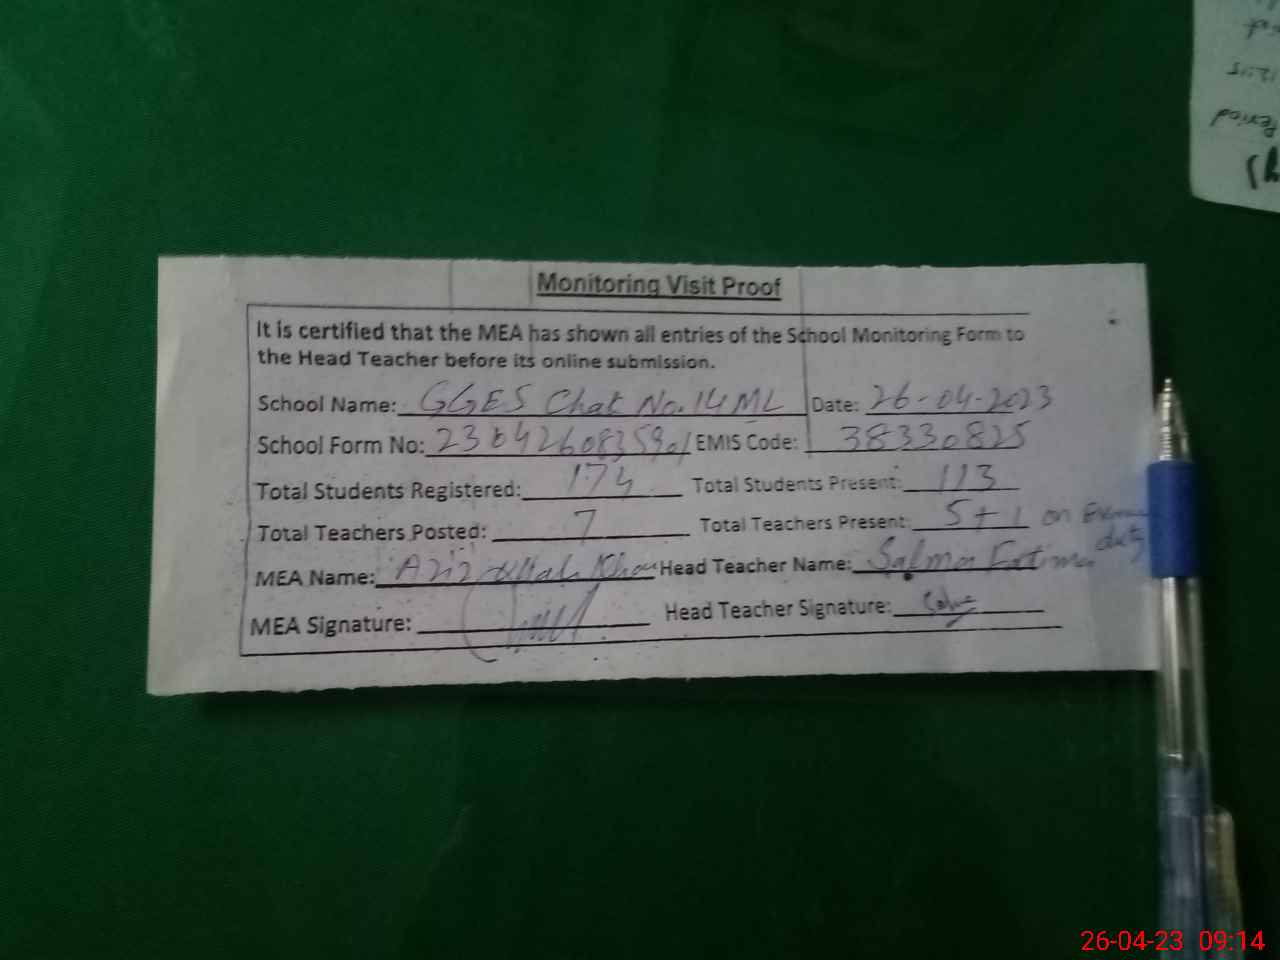 Monitoring Visit Proof
It is certified that the MEA has shown all entries of the School Monitoring Form to
the Head Teacher before its online submission.
School Name: GGES Chak No. 14 ML Date: 26-04-2023
School Form No: EMIS Code: 38330825
Total Students Registered: 174 Total Students Present: 113
Total Teachers Posted: 7 Total Teachers Present: 5+1 on duty
MEA Name: Aziz ullah Khan Head Teacher Name: Salma Fatima
MEA Signature: Head Teacher Signature:
Period
26-04-23 09:14